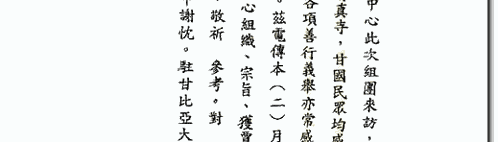 中心此次組團來訪，
真寺，甘國民眾均感
各項善行義舉亦常感
。茲電傳本（二）月
心組織、宗旨、獲
，敬祈　參考。對
謝忱。駐甘比亞大